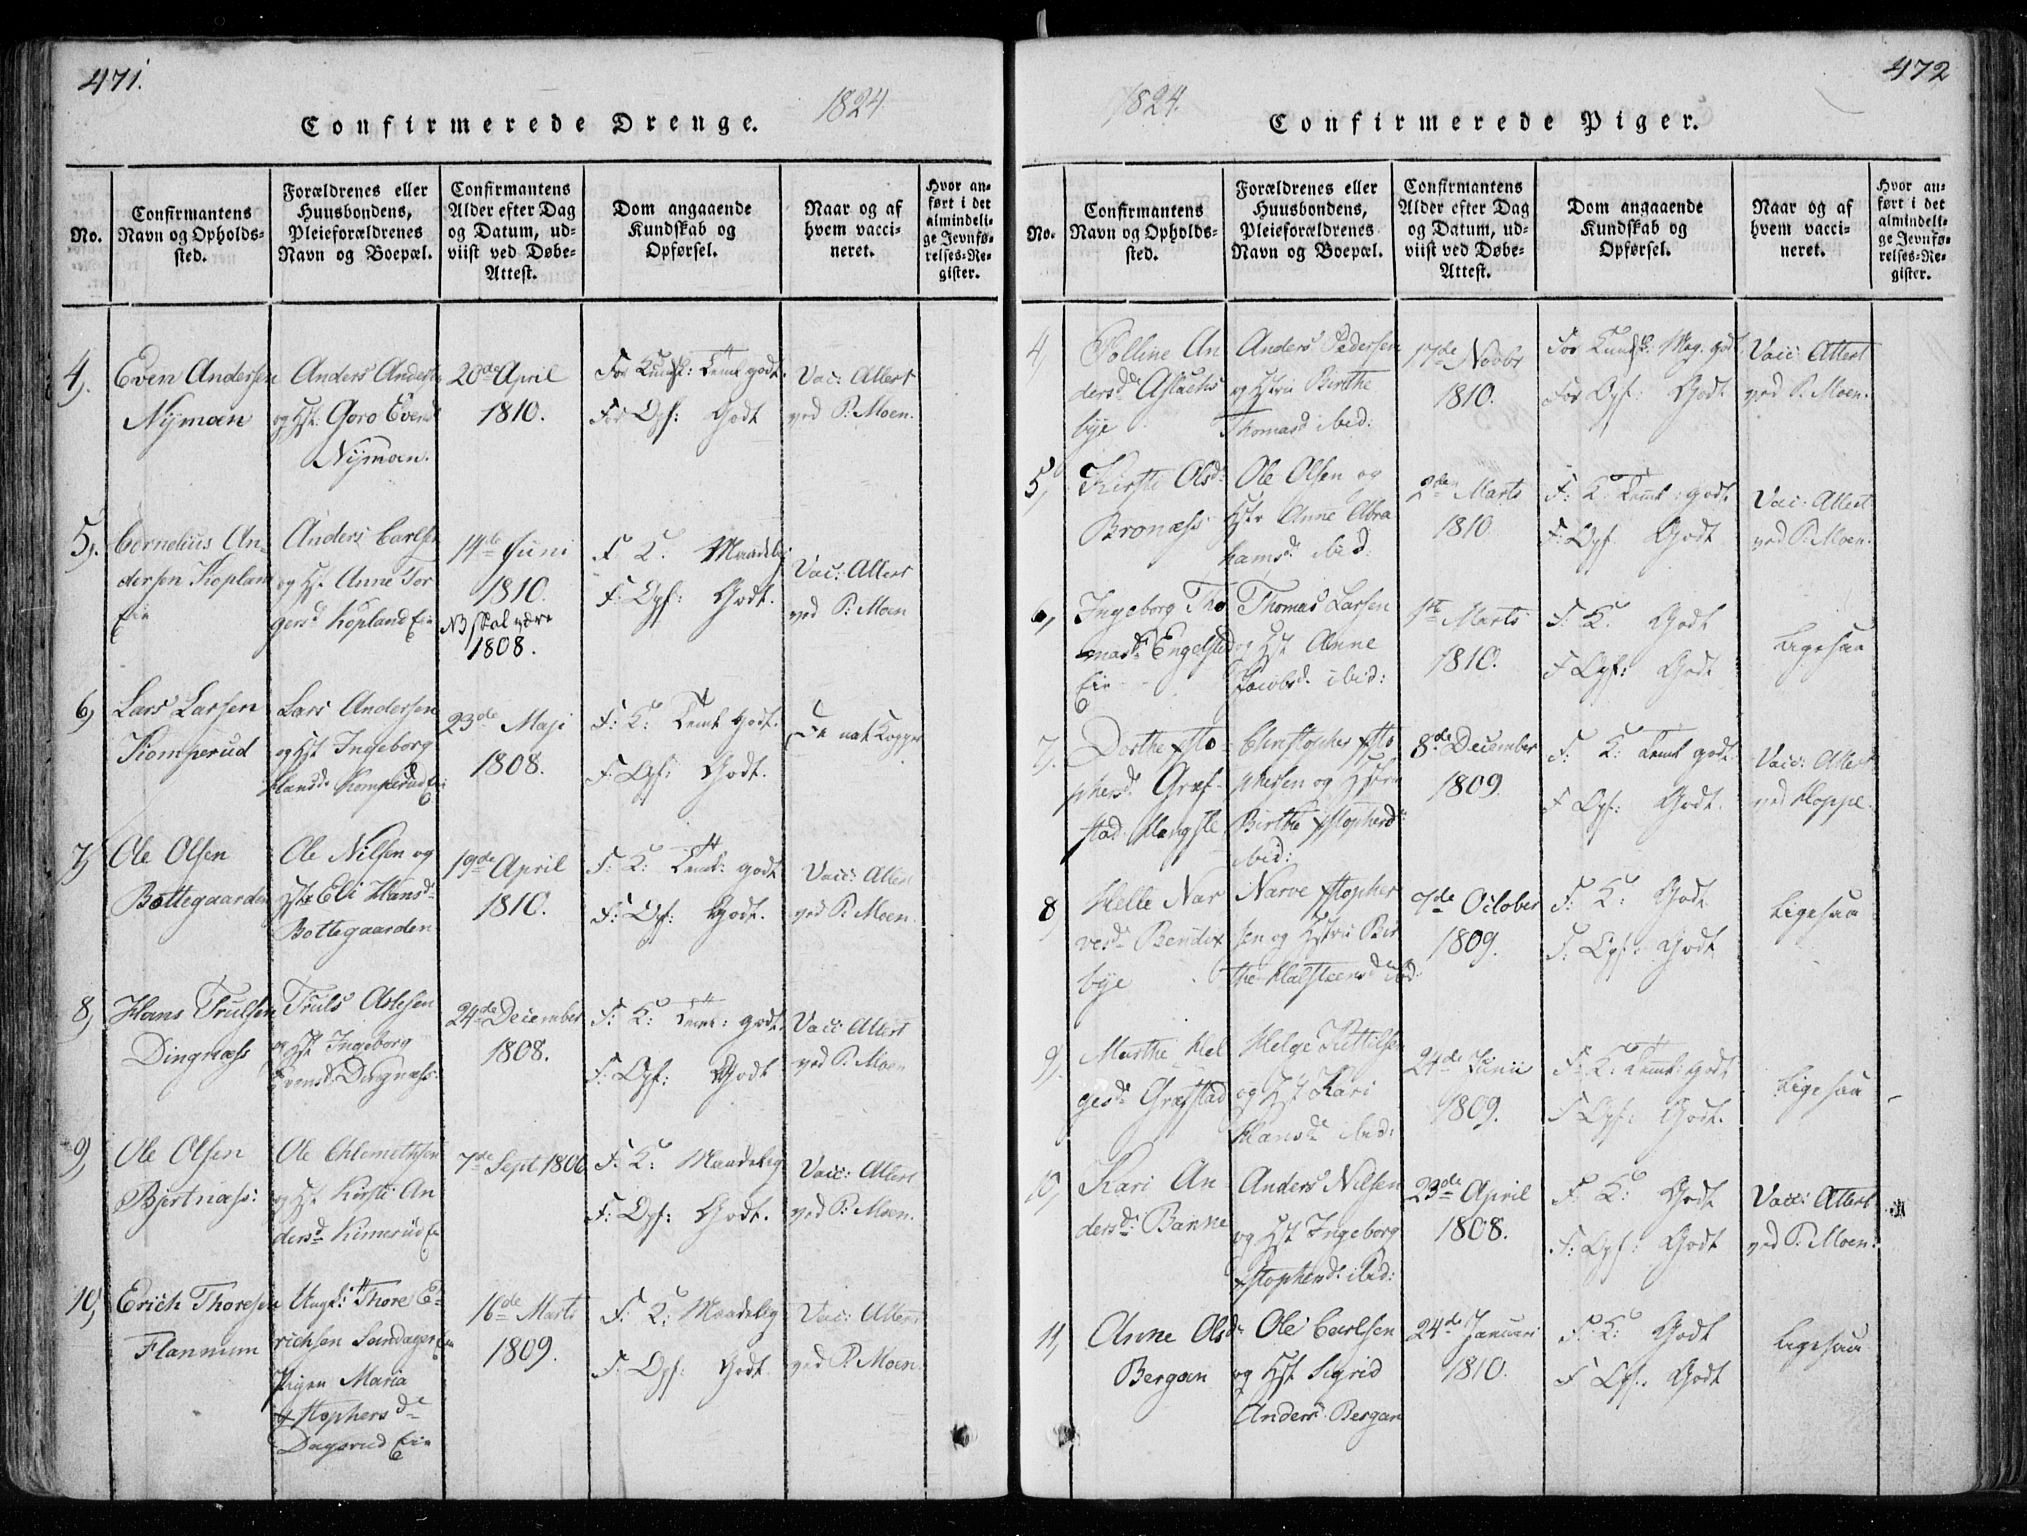 471.
Confirmerede Drenge.
1824
No.
Confirmantens
Navn og Opholds-
sted.
Forældrenes eller
Huusbondens,
Pleieforældrenes
Navn og Boepæl.
Confirmantens
Alder efter Dag
og Datum, ud-
viist ved Døbe-
Attest.
Dom angaaende
Kundskab og
Opførsel.
Naar og af
hvem vacci-
neret.
Hvor an-
ført i det
almindeli-
ge Jevnfø-
relses-Re-
gister.
4,
Even Andersen
Nÿmoen
Anders Anders
og Hst. Goro Evens
Nÿmoen.
20de April
1810.
For Kundsk: Teml godt.
For Opf: Godt
Vac: Attest
ved P: Moen.
5,
Cornelius An-
dersen Kopland
Eie
Anders Carlsen
og Hst Anne Tor
gersd Kopland Eie
14de Juni
1810.
NB skal være
1808.
F. K: Maadelig
F: Opf: Godt.
Vac: Attest
ved P: Moen
6,
Lars Larsen
Komperud
Lars Andersen
og Hst Ingeborg
Hansd. Komperud Eie
23de Maji
1808.
F: K: Teml Godt.
F. Opf: Godt.
nat Kopper
7,
Ole Olsen
Bottegaarden
Ole Nilsen og
Hst Eli Hansd
Bottegaarden
19de April
1810.
F: K: Teml: godt
F: Opf: Godt.
Vacc: Attest
ved P: Moen.
8,
Hans Trulsen
Dingnæss
Truls Aslesen
og Hst Ingeborg
Evensd. Dingnæss.
24de December
1808.
F: K: Teml: godt.
F: Opf: Godt
Vacc: Attest
ved P: Moen
9,
Ole Olsen
Bjertnæss:
Ole Chlemethsen
og Hst Kirsti An
dersd Kimerud Eie
7de Sept 1806
F: K: Maadelig
F: Opf: Godt.
Vacc: Attest
ved P: Moen.
10,
Erich Thoresen
Flannum
Ungk: Thore E-
richsen Sandager Eie
Pigen Maria
Xstophersd
Dagsrud Eie
16de Marts
1809.
F: K: Maadelig
F: Opf: Godt.
Vac: Attest
ved P. Moen.
472
1824.
Confirmerede Piger.
No.
Confirmantens
Navn og Opholds-
sted.
Forældrenes eller
Huusbondens,
Pleieforældrenes
Navn og Boepæl.
Confirmantens
Alder efter Dag
og Datum, ud-
viist ved Døbe-
Attest.
Dom angaaende
Kundskab og
Opførsel.
Naar og af
hvem vacci-
neret.
Hvor an-
ført i det
almindeli-
ge Jevnfø-
relses-Re-
gister.
4,
Polline An
dersd Aslachs
bÿe
Anders Pedersen
og Hstru Birthe
Thomasd ibid:
17de Novbr
1810.
For Kundsk: Meg. godt
For Opf: Godt
Vacc: Attest
ved P. Moen.
5,
Kirsti Olsd:
Bronæss
Ole Olsen og
Hstr Anne Abra
hamsd. ibid:
2den Marts
1810
F: K: Teml: godt
F: Opf. Godt
Vac: Attest
ved P: Moen.
6,
Ingeborg Tho
masd. Engelstad
Eie
Thomas Larsen
og Hst Anne
Jacobsd. ibid:
1ste Marts
1810.
F: K: Godt
F Opf: Godt
Ligesaa
7,
Dorthe Xsto
phersd. Græf-
stad
Christopher Xsto
phersen og Hstru
Birthe Xstophersd
ibid:
8de December
1809.
F: K: Teml godt.
F Opf: Godt.
Vacc: Attest
ved
8,
Helle Nar
vesd. Bendix
bÿe
Narve Xstopher
sen og Hstru Bir
the Halsteensd ibid:
7de October
1809.
F: K: Godt
F. Opf: Godt
Ligesaa
9,
Marthe Hel
gesd. Græfstad
Helge Kittilsen
og Hst Kari
Hansd. ibid:
24de Junii
1809.
F: K: Teml: godt
F Opf: Godt.
Ligesaa
10,
Kari An
dersd: Banne
Anders Nilsen
og Hst Ingeborg
Xstophersd. ibid:
23de April
1808.
F. K: Godt
F: Opf: Godt
Vacc: Attest
ved P: Moen.
11,
Anne Olsd.
Bergan
Ole Carlsen
og Hst Sigrid
Anders Bergan
24de Januari
1810.
F: K: Godt
F Opf. Godt
Ligesaa